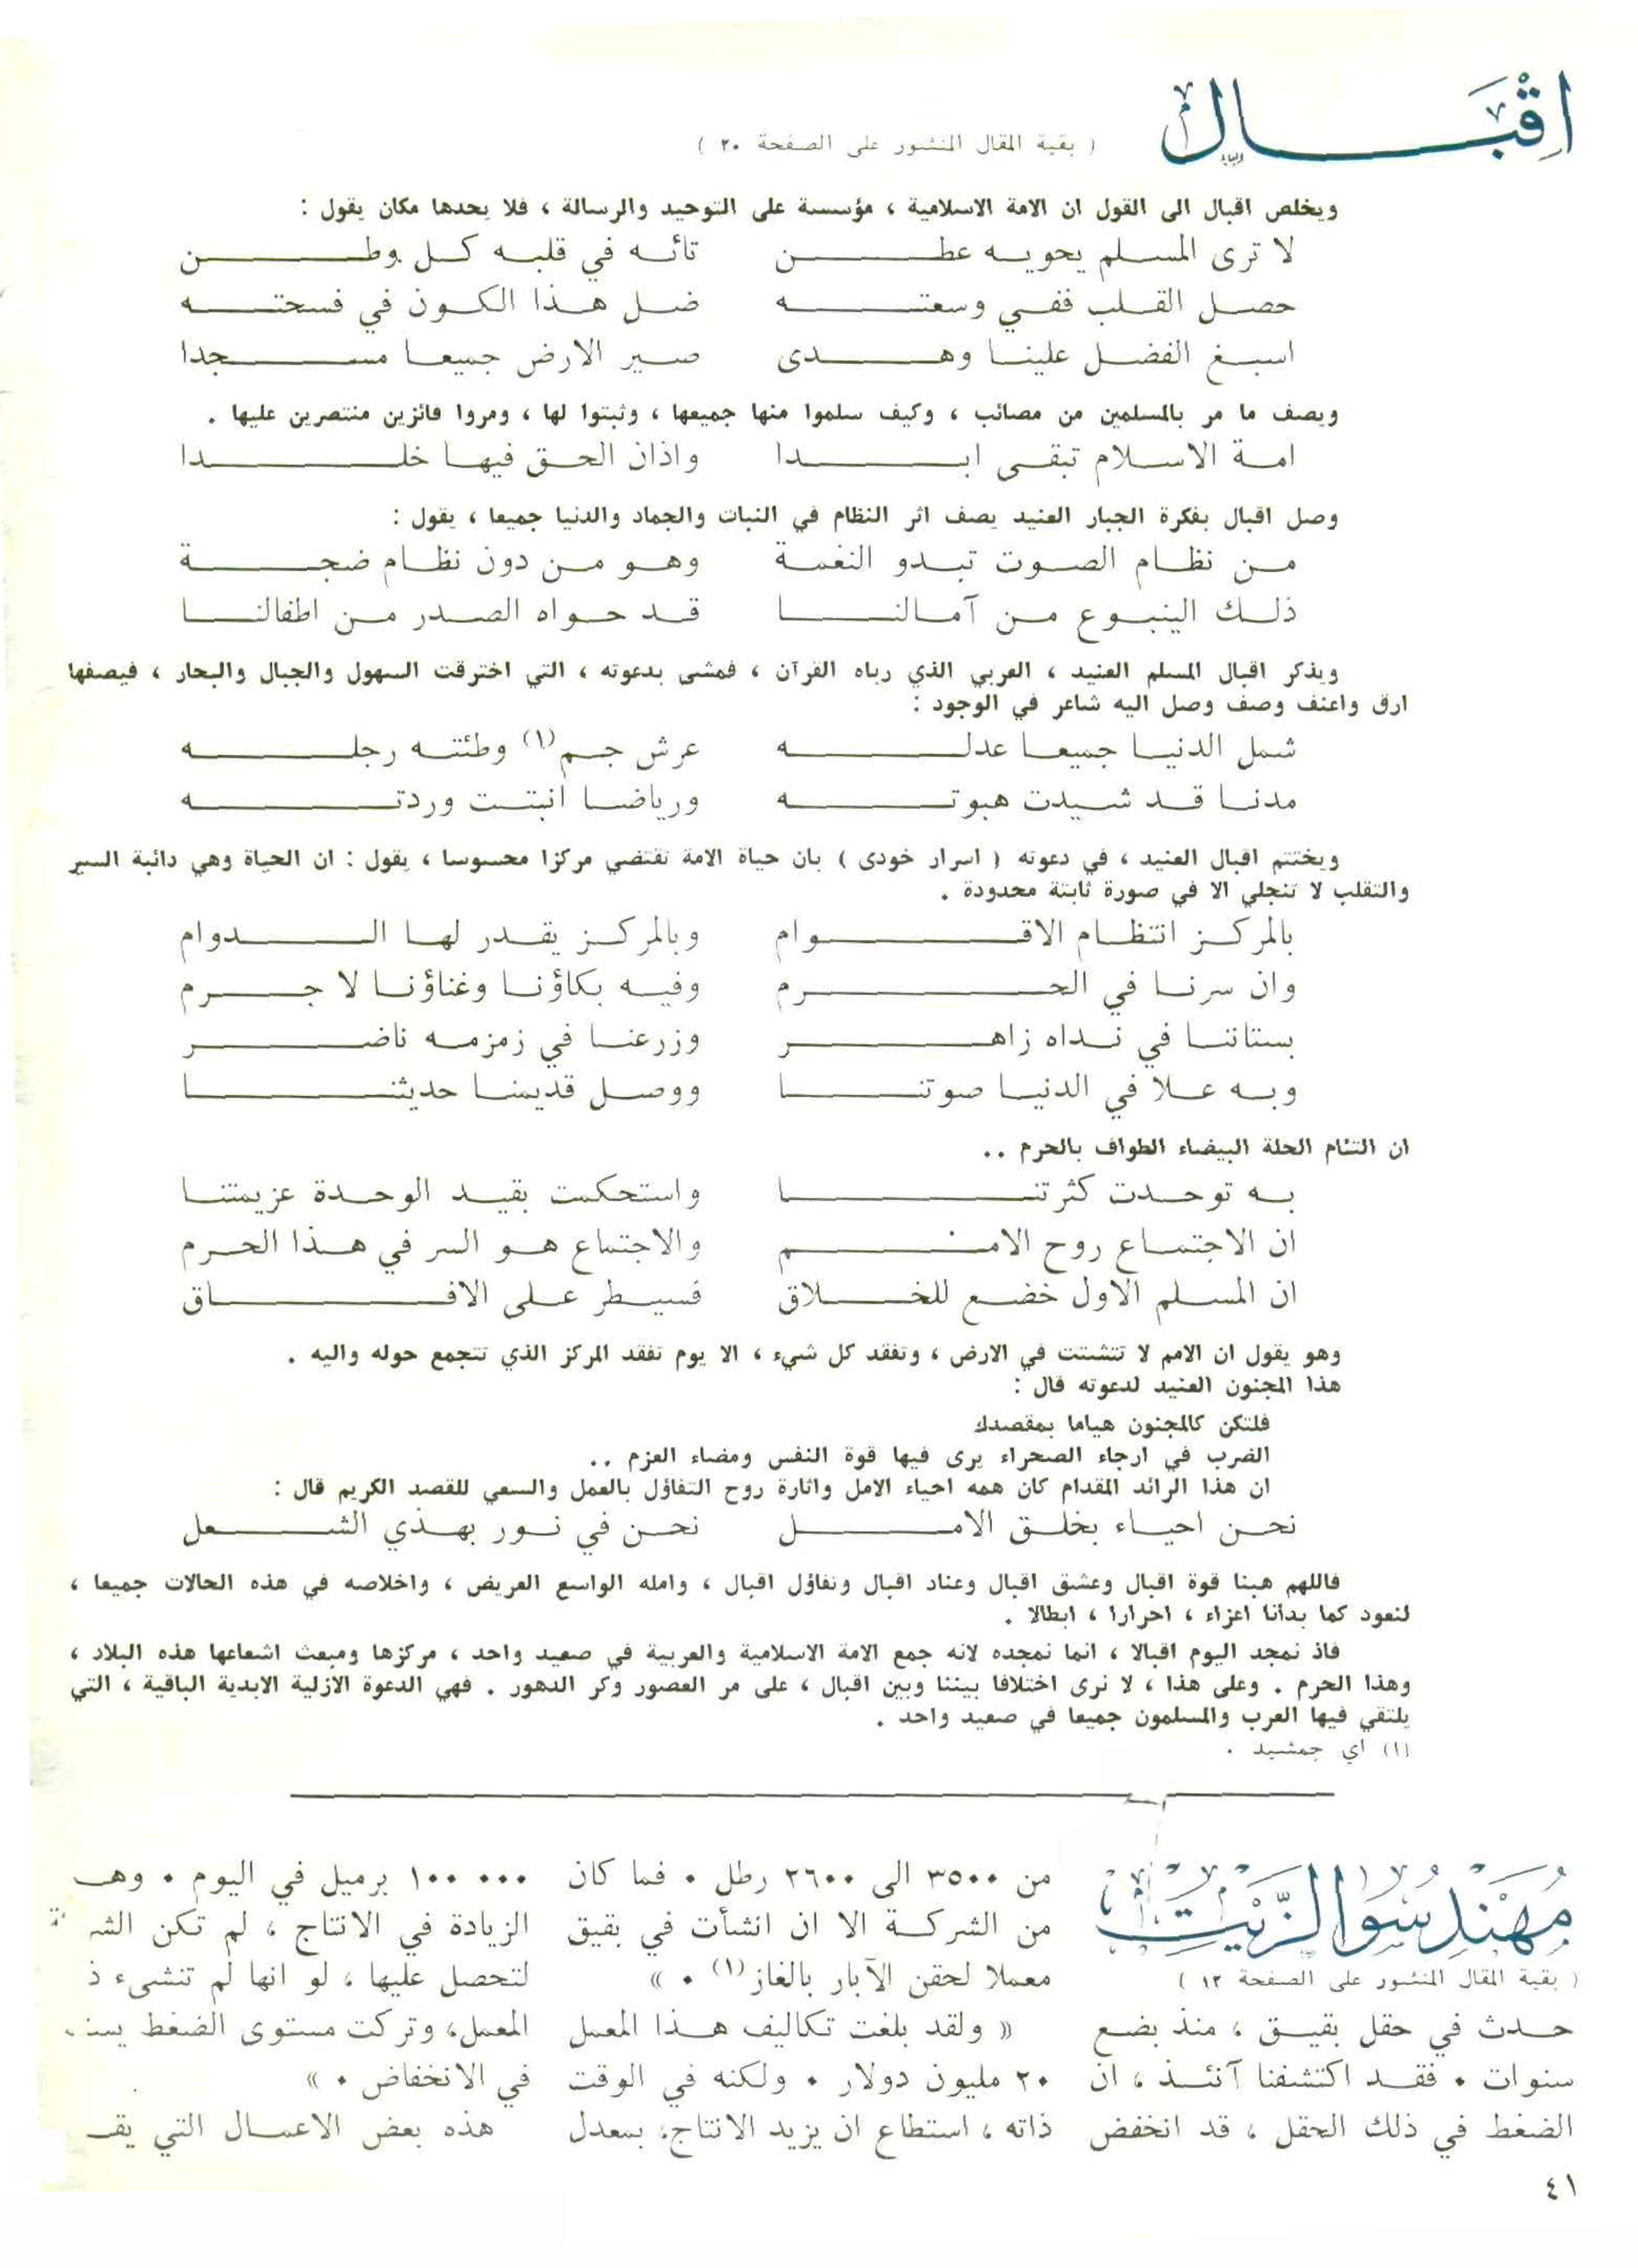 اقبال
( بقية المقال المنشور على الصفحة ٢٠ )
ويخلص اقبال الى القول ان الامة الاسلامية ، مؤسسة على التوحيد والرسالة ، فلا يحدها مكان يقول :
لا ترى المسلم يحويه عطن تائه في قلبه كل وطن
حصل القلب ففي وسعته ضل هذا الكون في فسحته
اسبغ الفضل علينا وهدى صير الارض جميعا مسجدا
ويصف ما مر بالمسلمين من مصائب ، وكيف سلموا منها جميعها ، وثبتوا لها ، ومروا فائزين منتصرين عليها .
امة الاسلام تبقى ابدا واذان الحق فيها خلدا
وصل اقبال بفكرة الجبار العنيد يصف اثر النظام في النبات والجماد والدنيا جميعا ، يقول :
من نظام الصوت تبدو النغمة وهو من دون نظام ضجة
ذلك الينبوع من آمالنا قد حواه الصدر من اطفالنا
ويذكر اقبال المسلم العنيد ، العربي الذي رباه القرآن ، فمشى بدعوته ، التي اخترقت السهول والجبال والبحار ، فيصفها
ارق واعنف وصف وصل اليه شاعر في الوجود :
شمل الدنيا جميعا عدله عرش جم (١) وطئته رجله
مدنا قد شيدت هبوته ورياضا انبتت وردته
ويختتم اقبال العنيد ، في دعوته ( اسرار خودى ) بان حياة الامة تقتضي مركزا محسوسا ، يقول : ان الحياة وهي دائبة السير
والتقلب لا تنجلي الا في صورة ثابتة محدودة .
بالمركز انتظام الاقوام وبالمركز يقدر لها الدوام
وان سرنا في الحرم وفيه بكاؤنا وغناؤنا لا جرم
بستاننا في نداه زاهر وزرعنا في زمزمه ناضر
وبه علا في الدنيا صوتنا ووصل قديمنا حديثنا
ان التئام الحلة البيضاء الطواف بالحرم ..
به توحدت كثرتنا واستحكمت بقيد الوحدة عزيمتنا
ان الاجتماع روح الامم والاجتماع هو السر في هذا الحرم
ان المسلم الاول خضع للخلاق فسيطر على الافاق
وهو يقول ان الامم لا تتشتت في الارض ، وتفقد كل شيء ، الا يوم تفقد المركز الذي تتجمع حوله واليه .
هذا المجنون العنيد لدعوته قال :
فلتكن كالمجنون هياما بمقصدك
الضرب في ارجاء الصحراء يرى فيها قوة النفس ومضاء العزم ..
ان هذا الرائد المقدام كان همه احياء الامل واثارة روح التفاؤل بالعمل والسعي للقصد الكريم قال :
نحن احياء بخلق الامل نحن في نور بهدي الشعل
فاللهم هبنا قوة اقبال وعشق اقبال وعناد اقبال وتفاؤل اقبال ، وامله الواسع العريض ، واخلاصه في هذه الحالات جميعا ،
لنعود كما بدأنا اعزاء ، احرارا ، ابطالا .
فاذ نمجد اليوم اقبالا ، انما نمجده لانه جمع الامة الاسلامية والعربية في صعيد واحد ، مركزها ومبعث اشعاعها هذه البلاد ،
وهذا الحرم . وعلى هذا ، لا نرى اختلافا بيننا وبين اقبال ، على مر العصور وكر الدهور . فهي الدعوة الازلية الابدية الباقية ، التي
يلتقي فيها العرب والمسلمون جميعا في صعيد واحد .
(١) اي جمشيد .
مُهندسو الزيت
( بقية المقال المنشور على الصفحة ١٢ )
حدث في حقل بقيق ، منذ بضع
سنوات . فقد اكتشفنا آنئذ ، ان
الضغط في ذلك الحقل ، قد انخفض
من ٣٥٠٠ الى ٢٦٠٠ رطل . فما كان
من الشركة الا ان انشأت في بقيق
معملا لحقن الآبار بالغاز (١) . »
« ولقد بلغت تكاليف هذا المعمل
٢٠ مليون دولار . ولكنه في الوقت
ذاته ، استطاع ان يزيد الانتاج ، بمعدل
١٠٠ ٠٠٠ برميل في اليوم .
الزيادة في الانتاج ، لم تكن
لتحصل عليها ، لو انها لم تنشىء
المعمل ، وتركت مستوى الضغط
في الانخفاض . »
هذه بعض الاعمال التي
٤١